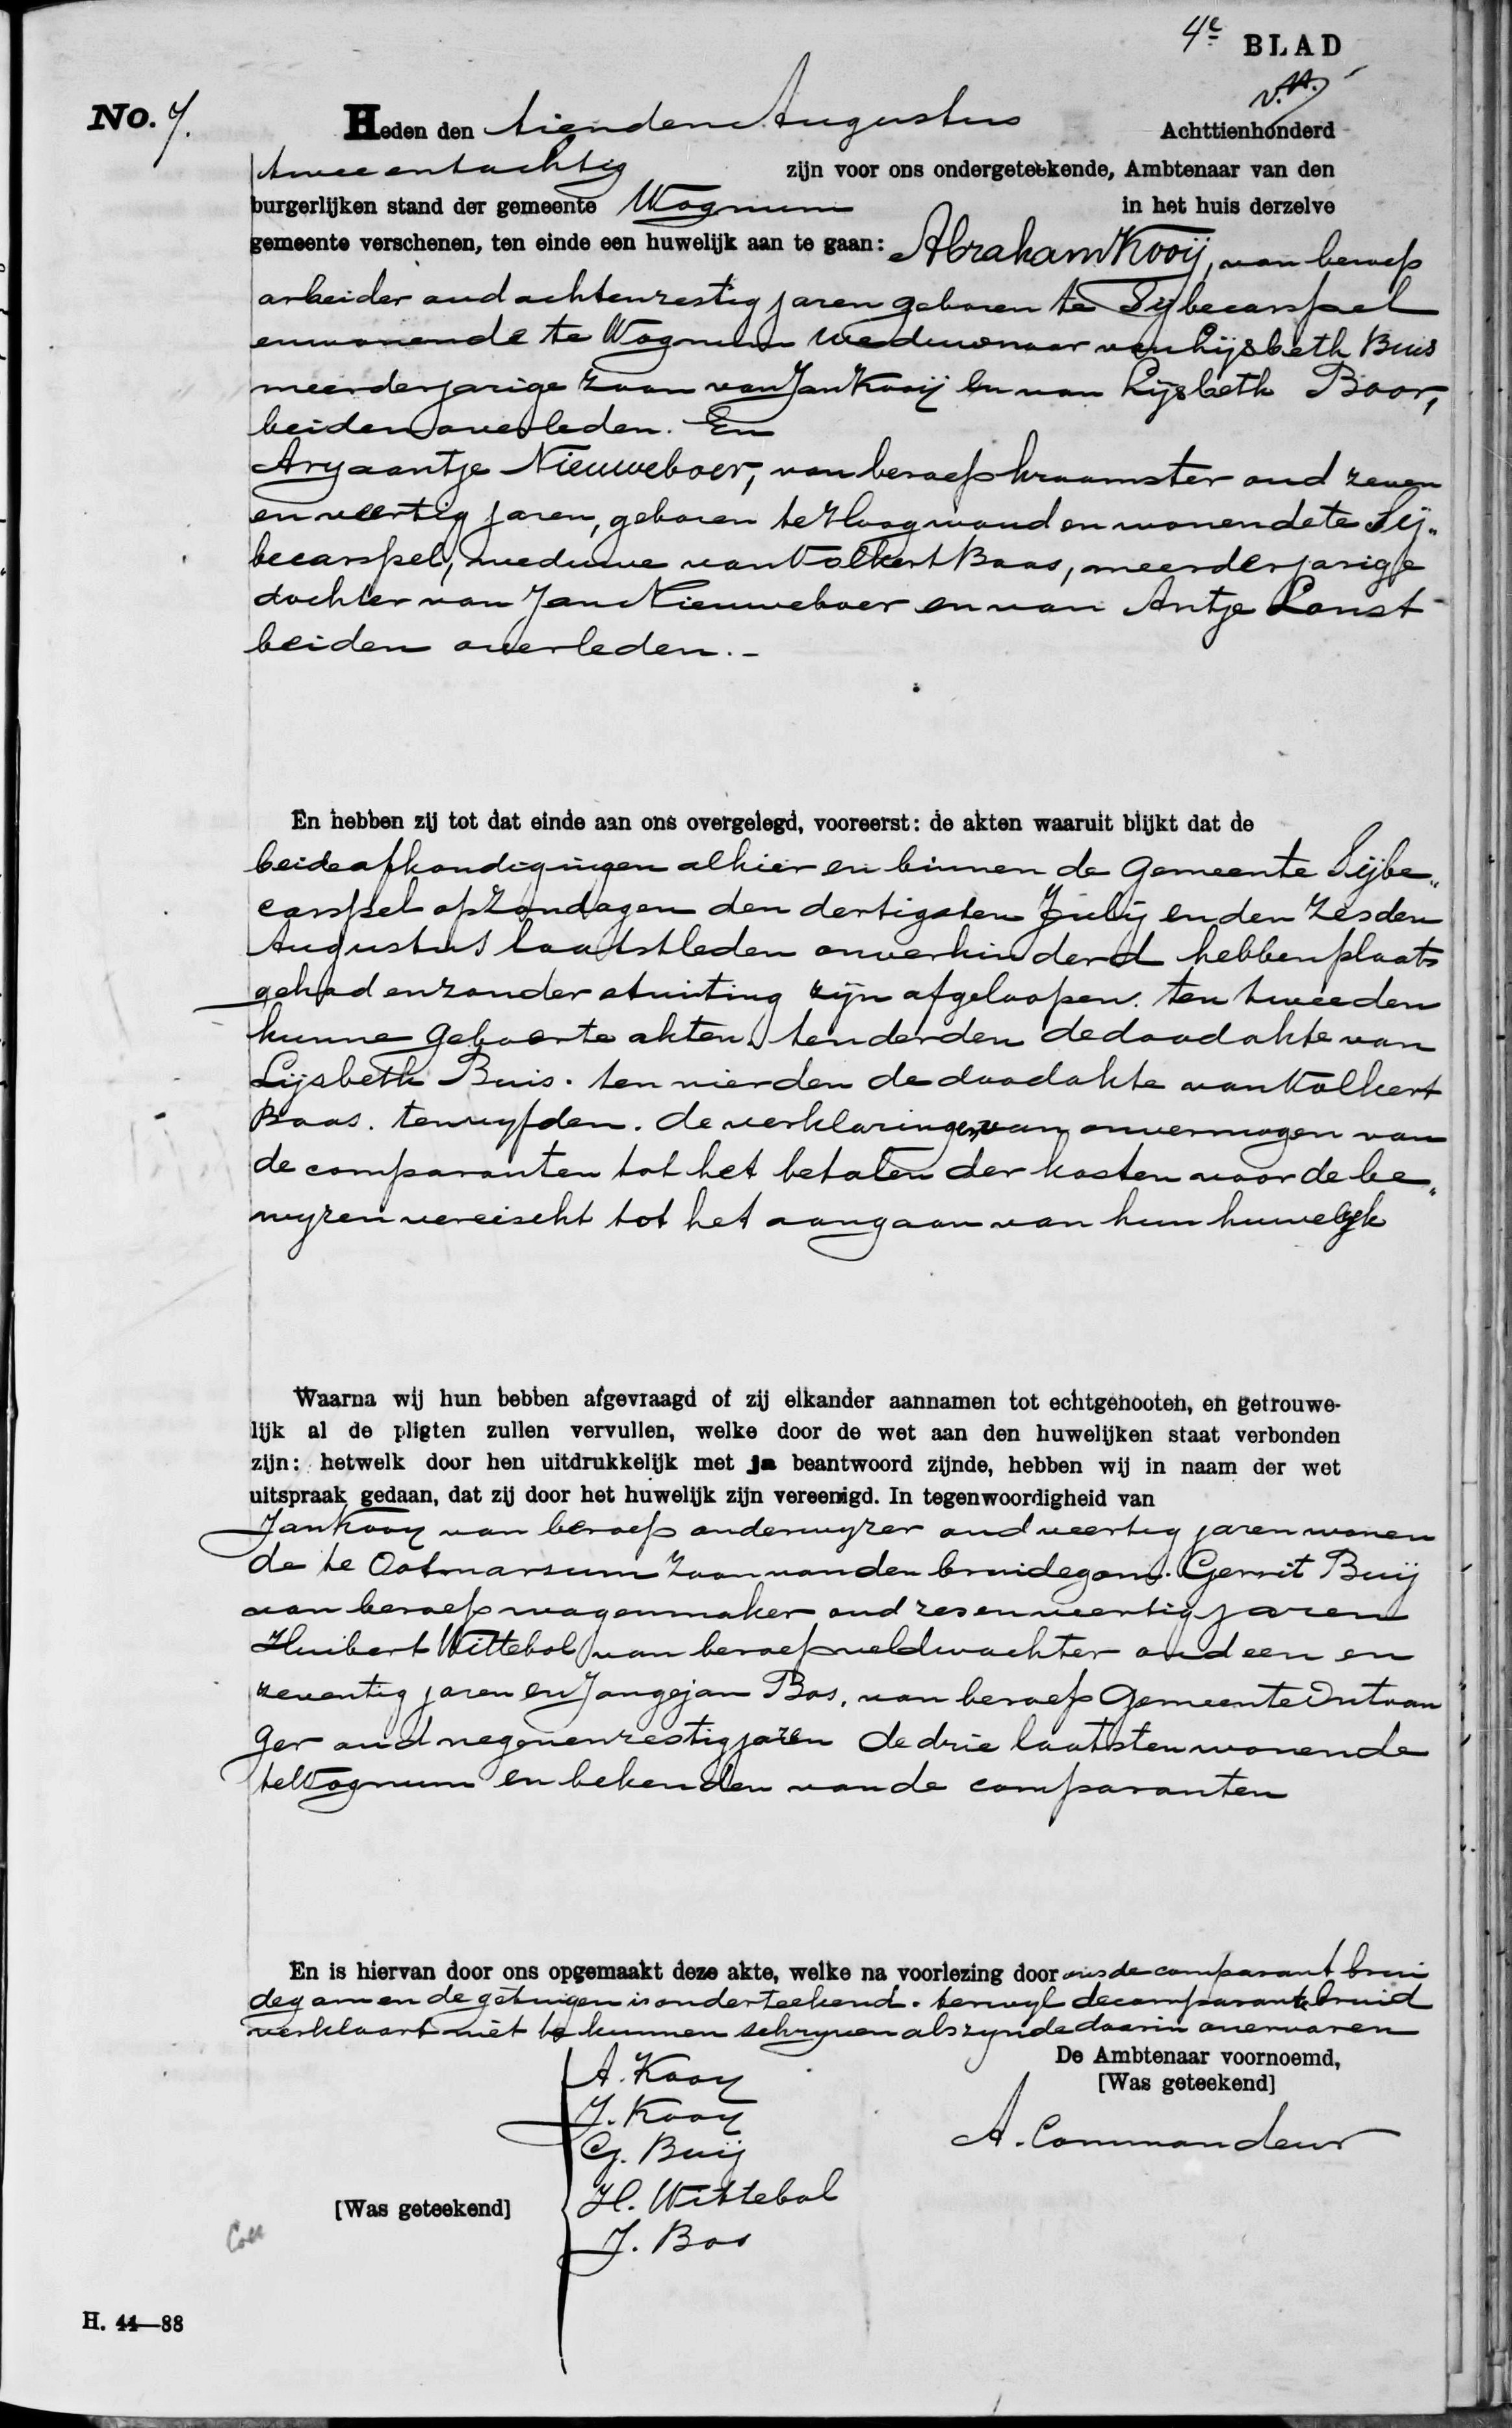 4e BLAD
v.A.
No. 7.
Heden den tienden Augustus Achttienhonderd
twee en tachtig zijn voor ons ondergeteekende, Ambtenaar van den
burgerlijken stand der gemeente Wognum in het huis derzelve
gemeente verschenen, ten einde een huwelijk aan te gaan: Abraham Kooij, van beroep
arbeider oud achtenzestig jaren geboren te Sijbecarspel
en wonende te Wognum weduwnaar van Lijsbeth Buis
meerderjarige zoon van Jan Kooij en van Lijsbeth Boor,
beiden overleden. En
Aryaantje Nieuweboer, van beroep kraamster oud zeven
en veertig jaren, geboren te Hoogwoud en wonende te Sij„
becarspel, weduwe van Volkert Baas, meerderjarige
dochter van Jan Nieuweboer en van Antje Const
beiden overleden. -
En hebben zij tot dat einde aan ons overgelegd, vooreerst: de akten waaruit blijkt dat de
beide afkondigingen alhier en binnen de gemeente Sijbe„
carspel op Zondagen den dertigsten Julij en den zesden
Augustus laatstleden onverhinderd hebben plaats
gehad en zonder stuiting zijn afgeloopen. ten tweeden
hunne geboorte akten. ten derden de doodakte van
Lijsbeth Buis. ten vierden de doodakte van Volkert
Baas. ten vyfden. de verklaringen van onvermogen van
de comparanten tot het betalen der kosten voor de be„
wyzen vereischt tot het aangaan van hun huwelyk
Waarna wij hun hebben afgevraagd of zij elkander aannamen tot echtgenooten, en getrouwe-
lijk al de pligten zullen vervullen, welke door de wet aan den huwelijken staat verbonden
zijn: hetwelk door hen uitdrukkelijk met ja beantwoord zijnde, hebben wij in naam der wet
uitspraak gedaan, dat zij door het huwelijk zijn vereenigd. In tegenwoordigheid van
Jan Kooy van beroep onderwyzer oud veertig jaren wonen
de te Ootmarsum zoon van den bruidegom. Gerrit Buij
van beroep wagenmaker oud zes en veertig jaren
Huibert Wittebol van beroep veldwachter oud een en
zeventig jaren en Jongejan Bos, van beroep Gemeente Ontvan
ger oud negen en zestig jaren de drie laatsten wonende
te Wognum en bekenden van de comparanten
En is hiervan door ons opgemaakt deze akte, welke na voorlezing door ons de comparant brui
degom en de getuigen is onderteekend. terwyl de comparante bruid
verklaart niet te kunnen schryven als zynde daarin onervaren
De Ambtenaar voornoemd,
[Was geteekend]
A. Commandeur
[Was geteekend]
A. Kooy
J. Kooy
G. Buij
H. Wittebol
J. Bos
H. 44—88